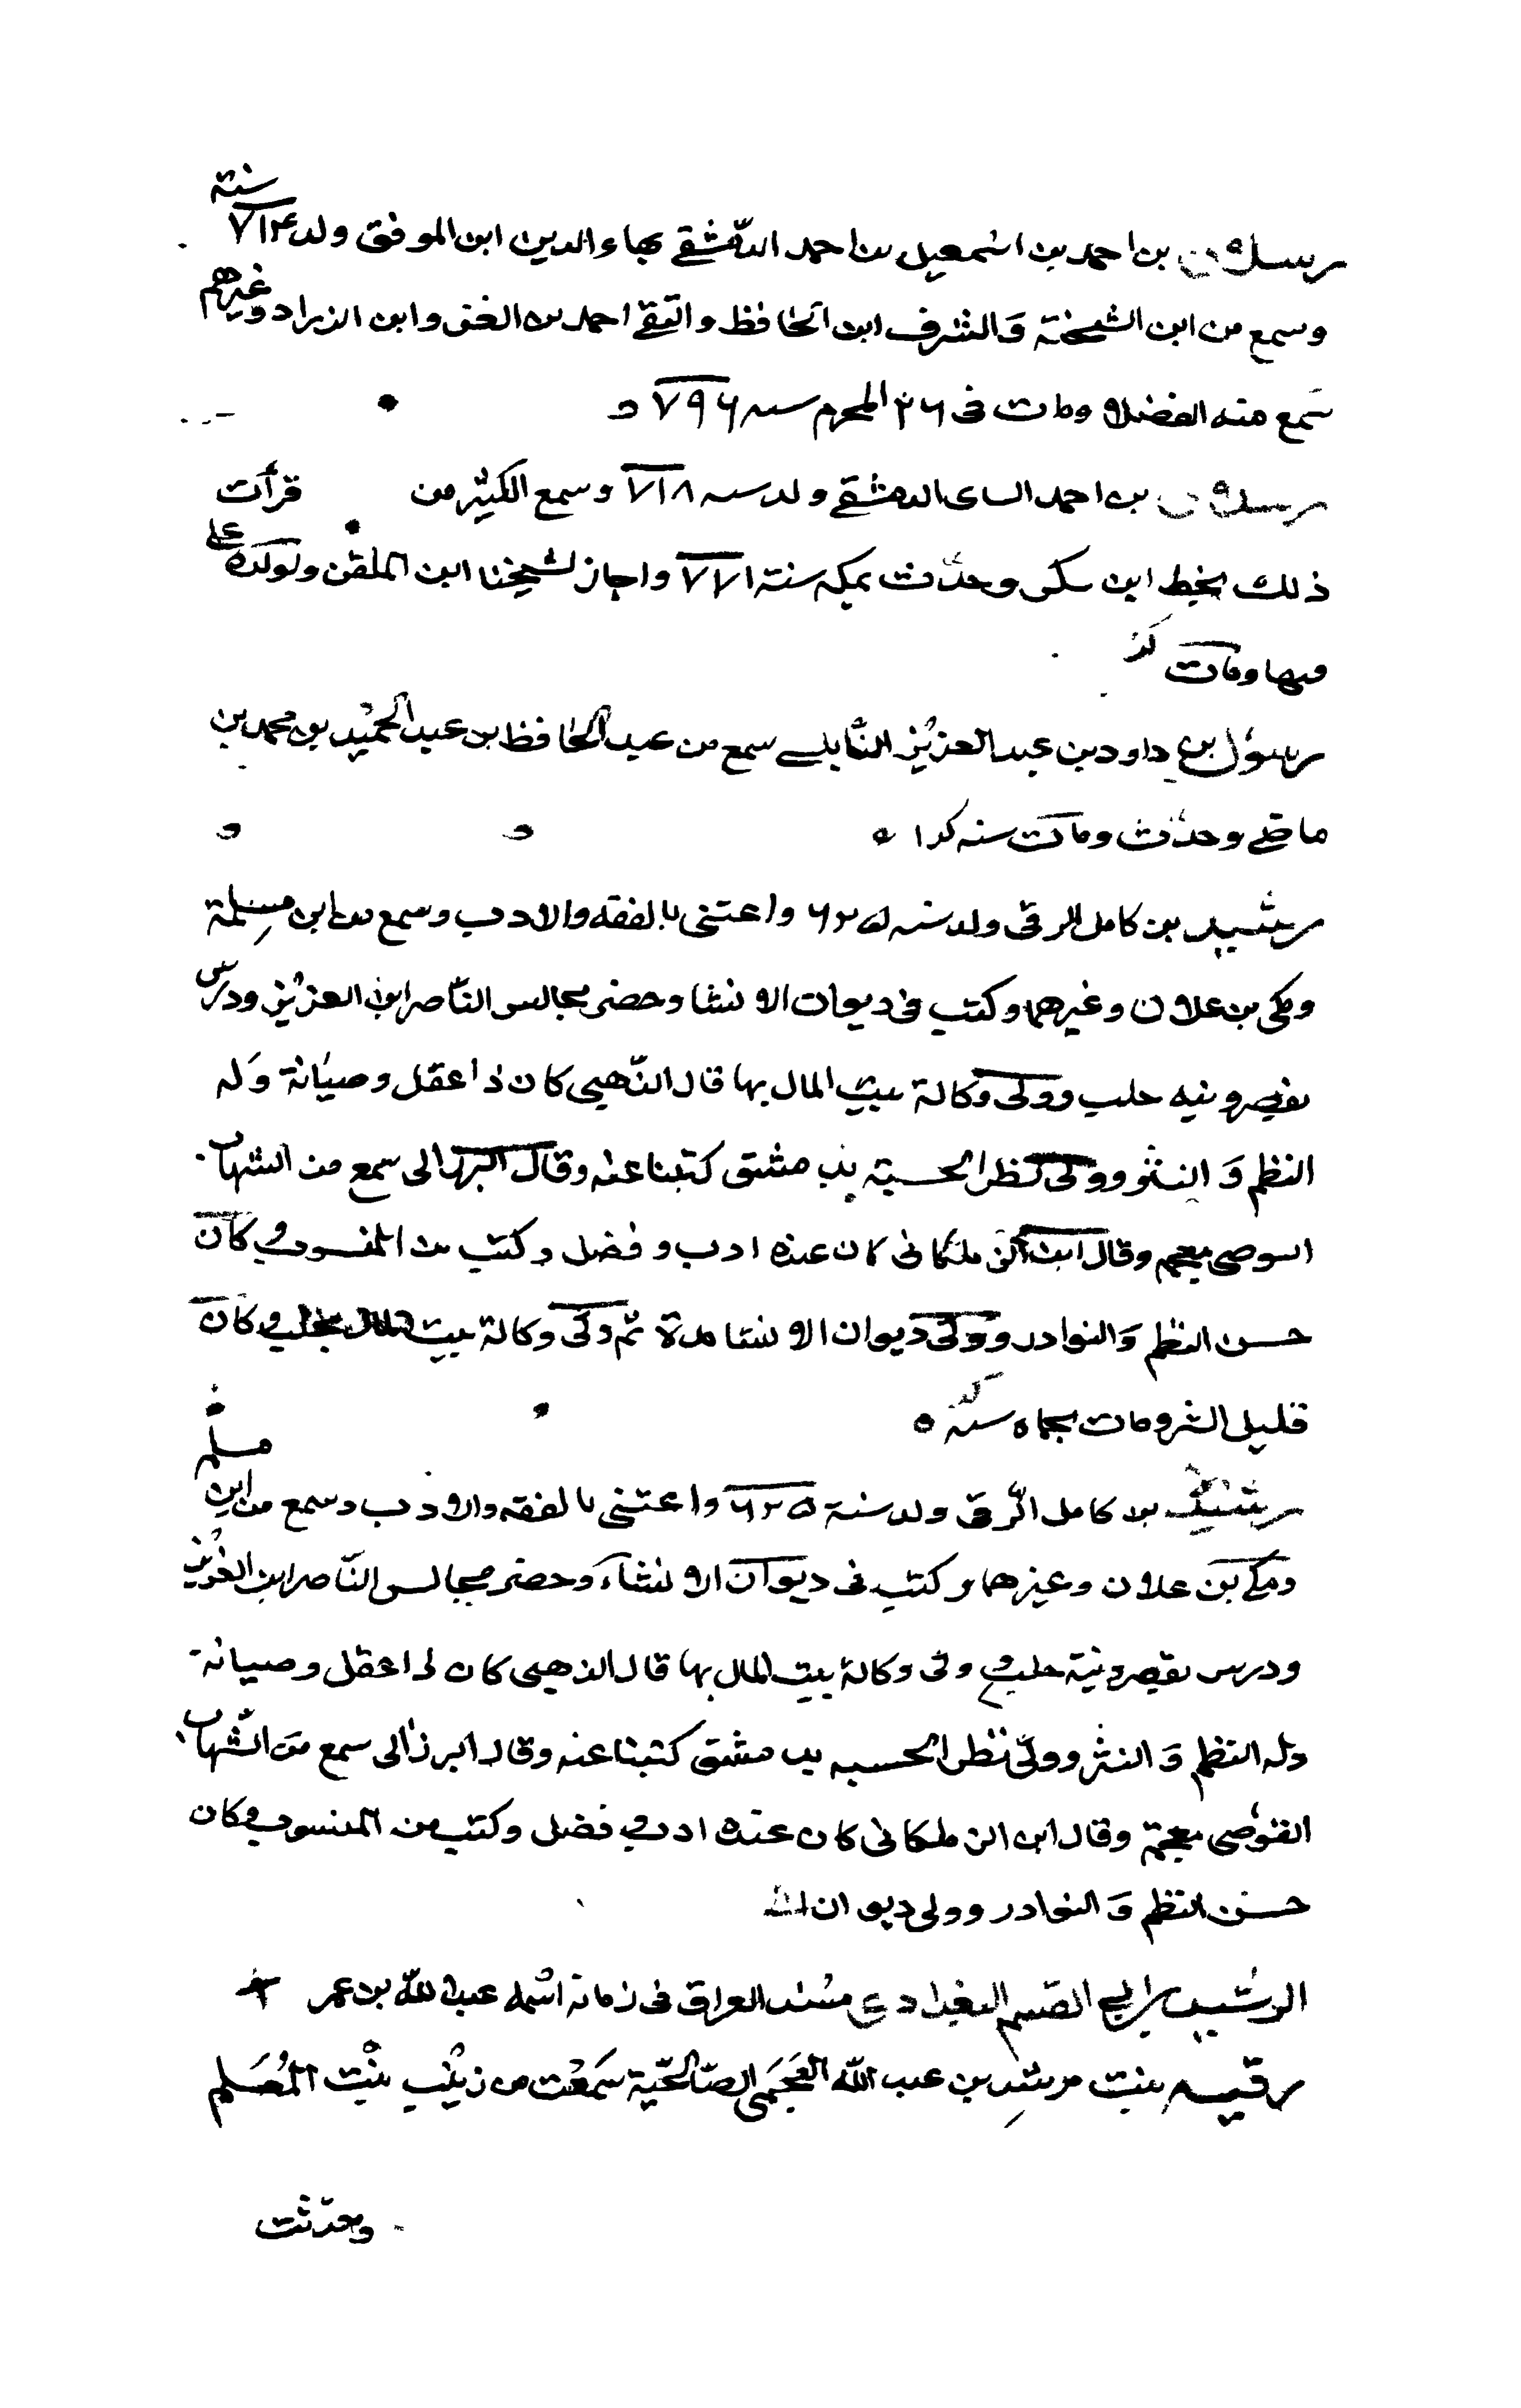 رسلان بن احمد بن اسمعيل بن احمد الدمشقي بهاء الدين ابن الموفق ولد سنة ٧١۴
وسمع من ابن الشيخة والشرف ابن الحافظ والتقي احمد بن العز وابن الزراد وغيرهم
سمع منه الفضلا ومات فى ٢٦ المحرم سنه ٧٩۶
رسلان بن احمد الدمشقي ولد سنه ٧١٨ وسمع الكثير من قرأت
ذلك بخط ابن سكر وحدّث بمكه سنة ٧٧١ واجاز لشيخنا ابن الملقن ولولده على
فيها ومات
رسول بن داود بن عبد العزيز النابلسے سمع من عبد الحافظ بن عبد الحميد بن محمد بن
ماضے وحدّث ومات سنه
رشيد بن كامل الرقى ولد سنه ۶٢۵ واعتنى بالفقه والادب وسمع من ابن مسلمة
ومكى بن علان وغيرهما وكتب فى ديوان الانشا وحضر مجالس الناصر ابن العزيز ودرس
بقيصرونيه حلب وولى وكالة بيت المال بها قال الذّهبى كان ذا عقل وصيانة وله
النظم وَالنثر وولى نظر الحسبة بدمشق كتبنا عنه وقال البرزالى سمع من الشهاب
القوصى معجمه وقال ابن الزملكانى كان عنده ادب وفضل وكتب من المنسوب وكان
حسن النظم وَالنوادر وولى ديوان الانشا مدة ثم ولى وكالة بيت المال بحلب وكان
قليل الشر ومات بحماه سنة
رشيد بن كامل الرّقى ولد سنة ۶٢۵ واعتنى بالفقه والادب وسمع من ابن مسلم
ومكے بن علان وغيرهما وكتب فى ديوان الانشاء وحضر مجالس النّاصر ابن العزيز
ودرس بقيصرونية حلب وولى وكالة بيت المال بها قال الذهبى كان ذا عقل وصيانة
وله النظم وَالنثر وولىّ نظر الحسبه بدمشق كتبنا عنه وقال البرزالى سمع من الشّهاب
القوصى معجمة وقال ابن الزملكانى كان عنده ادب وفضل وكتب من المنسوب وكان
حسن النظم وَالنوادر وولى ديوان
الرشيد بن ابى القسم البغدادى مسند العراق فى زمانه اسمه عبد اللّه بن عمر
رقيه بنت مرشد بن عبد اللّه العَجَمى الصّالحيّة سَمعْت من زينب بنْت المُسَلم
وحدّثت